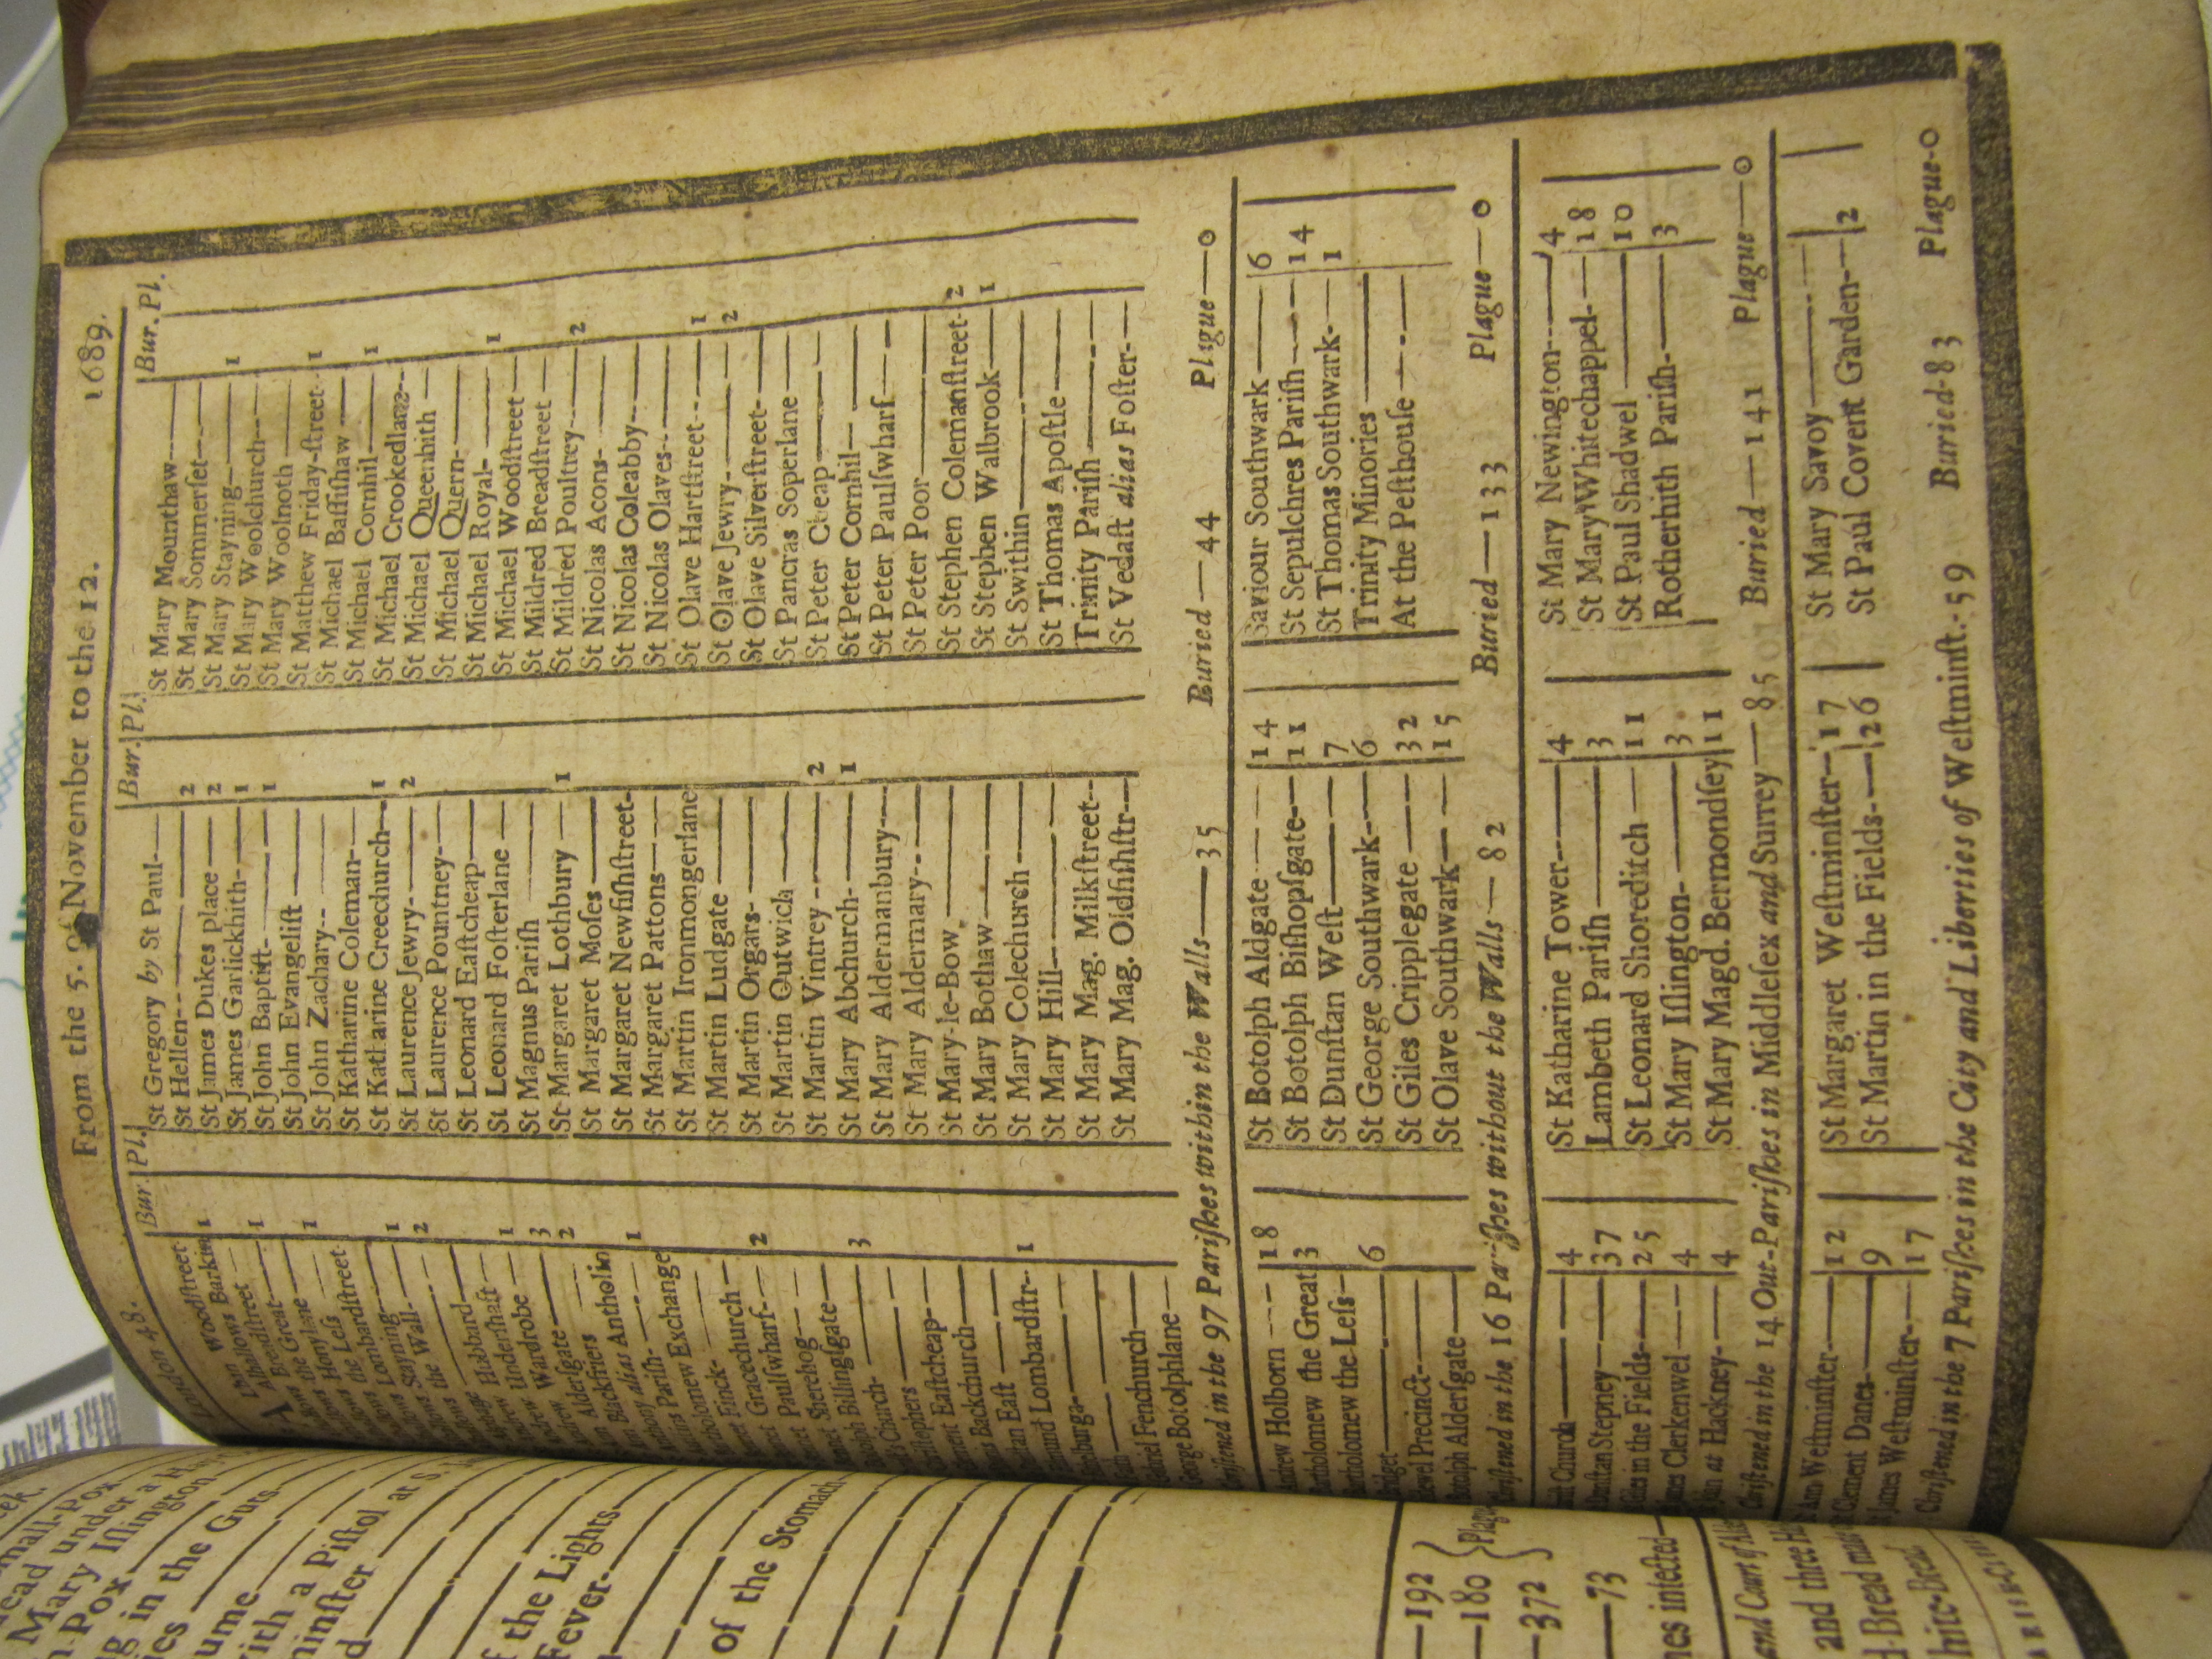 London 48. From the 5. of November to the 12. 1689.
Bur. Pl. Bur. Pl. Bur. Pl.
Woodſtreet
Barkin 1
Breadſtreet 1
Great
Honylane 1
the Leſs
Lombardſtreet
Stayning 1
the Wall 2
Hubbard
Underſhaft 1
Wardrobe 3
Alderſgate 2
Blackfriers
alias Antholin 1
Pariſh
Exchange
Finck
Gracechurch 2
Paulſwharf
Sherehog
Billingſgate 3
Church
Eaſtcheap
Backchurch
Eaſt 1
Lombardſtr
Fenchurch
George Botolphlane
St Gregory by St Paul
St Hellen 2
St James Dukes place 2
St James Garlickhith 1
St John Baptiſt 1
St John Evangeliſt
St John Zachary
St Katharine Coleman
St Katharine Creechurch 1
St Laurence Jewry 2
St Laurence Pountney
St Leonard Eaſtcheap
St Leonard Foſterlane
St Magnus Pariſh
St Margaret Lothbury 1
St Margaret Moſes
St Margaret Newfiſhſtreet
St Margaret Pattons
St Martin Ironmongerlane
St Martin Ludgate
St Martin Orgars
St Martin Outwich
St Martin Vintrey 2
St Mary Abchurch 1
St Mary Aldermanbury
St Mary Aldermary
St Mary-le-Bow
St Mary Bothaw
St Mary Colechurch
St Mary Hill
St Mary Mag. Milkſtreet
St Mary Mag. Oldfiſhſtr
St Mary Mounthaw
St Mary Sommerſet
St Mary Stayning 1
St Mary Woolchurch
St Mary Woolnoth
St Matthew Friday-ſtreet 1
St Michael Baſſiſhaw
St Michael Cornhil 1
St Michael Crookedlane
St Michael Queenhith
St Michael Quern
St Michael Royal 1
St Michael Woodſtreet
St Mildred Breadſtreet
St Mildred Poultrey 2
St Nicolas Acons
St Nicolas Coleabby
St Nicolas Olaves
St Olave Hartſtreet 1
St Olave Jewry 2
St Olave Silverſtreet
St Pancras Soperlane
St Peter Cheap
St Peter Cornhil
St Peter Paulſwharf
St Peter Poor
St Stephen Colemanſtreet 2
St Stephen Walbrook 1
St Swithin
St Thomas Apoſtle
Trinity Pariſh
St Vedaſt alias Foſter
Chriſtened in the 97 Pariſhes within the Walls 35 Buried 44 Plague 0
Andrew Holborn 18
Bartholomew the Great 3
Bartholomew the Leſs
Bridget 6
Bridewel Precinct
Botolph Alderſgate
St Botolph Aldgate 14
St Botolph Biſhopſgate 11
St Dunſtan Weſt 7
St George Southwark 6
St Giles Cripplegate 32
St Olave Southwark 15
Saviour Southwark 6
St Sepulchres Pariſh 14
St Thomas Southwark 1
Trinity Minories
At the Peſthouſe
Chriſtened in the 16 Pariſhes without the Walls 82 Buried 133 Plague 0
Church 4
Dunſtan Stepney 37
Giles in the Fields 25
James Clerkenwel 4
John at Hackney 4
St Katharine Tower 4
Lambeth Pariſh 3
St Leonard Shoreditch 11
St Mary Iſlington 3
St Mary Magd. Bermondſey 11
St Mary Newington 4
St Mary Whitechappel 18
St Paul Shadwel 10
Rotherhith Pariſh 3
Chriſtened in the 14 Out-Pariſhes in Middleſex and Surrey 85 Buried 141 Plague 0
Ann Weſtminſter 12
Clement Danes 9
James Weſtminſter 17
St Margaret Weſtminſter 17
St Martin in the Fields 26
St Mary Savoy
St Paul Covent Garden 2
Chriſtened in the 7 Pariſhes in the City and Liberties of Weſtminſt. 59 Buried 83 Plague 0
Small-Pox
dead under a
Mary Iſlington
Pox
in the Guts
with a Piſtol at S.
of the Lights
Fever
of the Stomach
192
180
372
73
infected
and Court of
and three
Bread